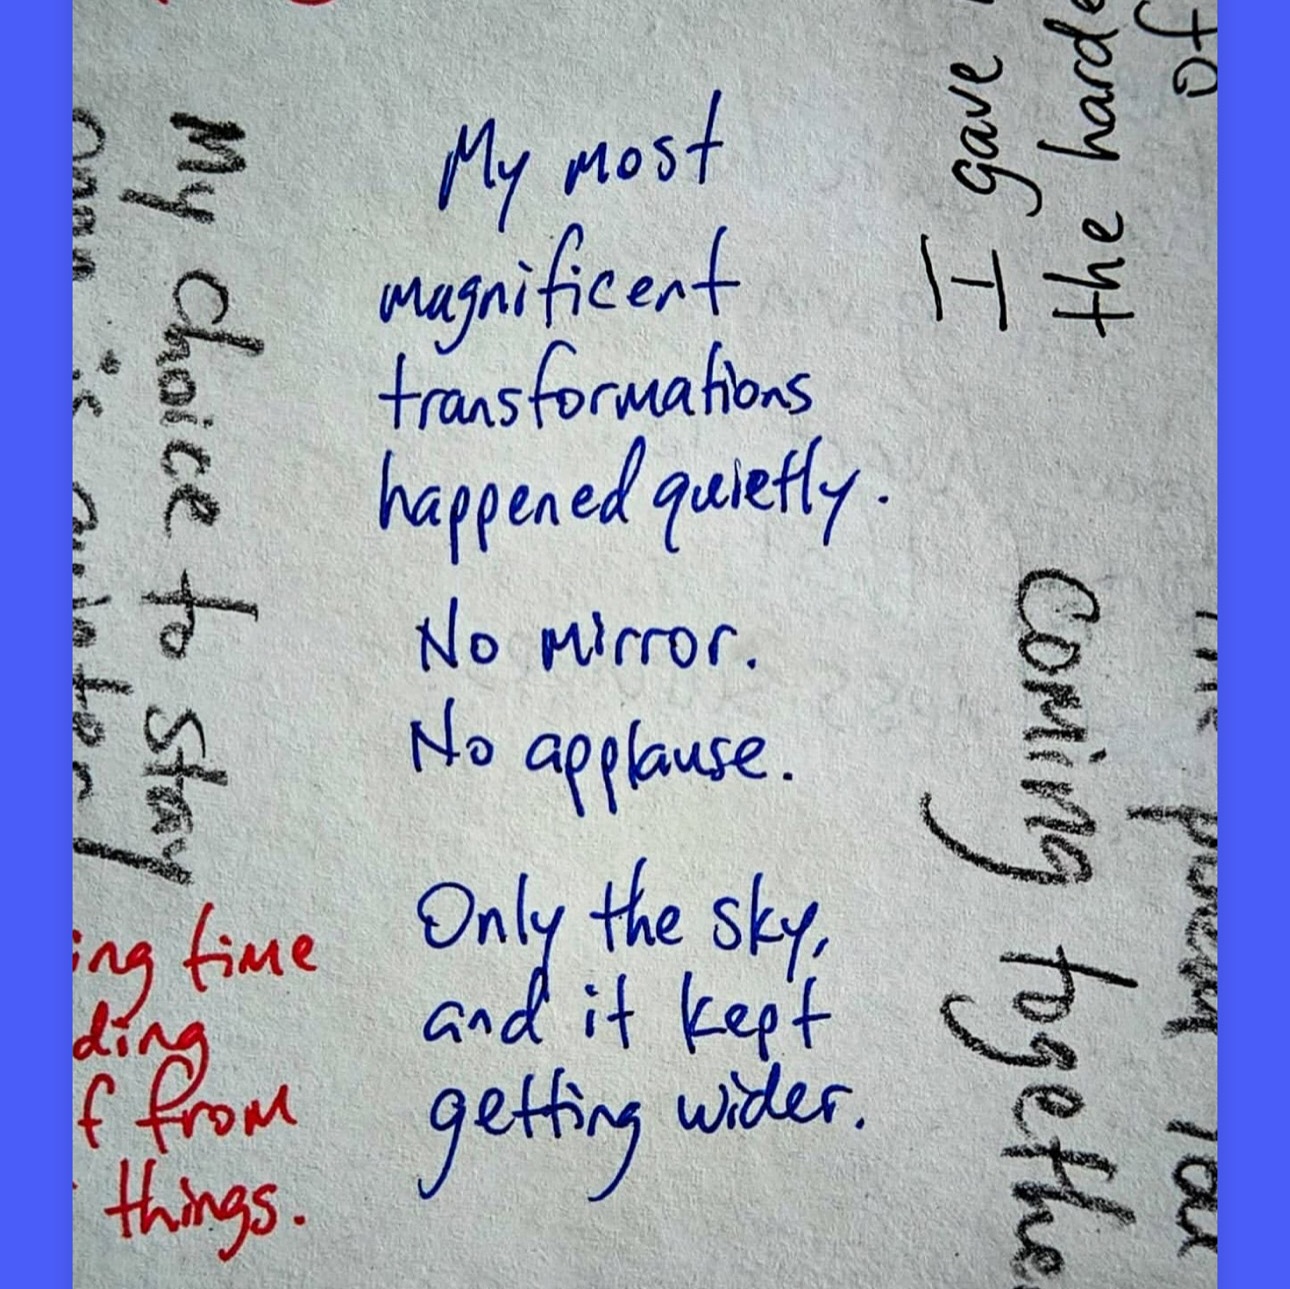 My most
magnificent
transformations
happened quietly.
No mirror.
No applause.
Only the sky,
and it kept
getting wider.
My choice to stay
ing time
ding
f from
things.
I gave
the harde
of
Coming togethe